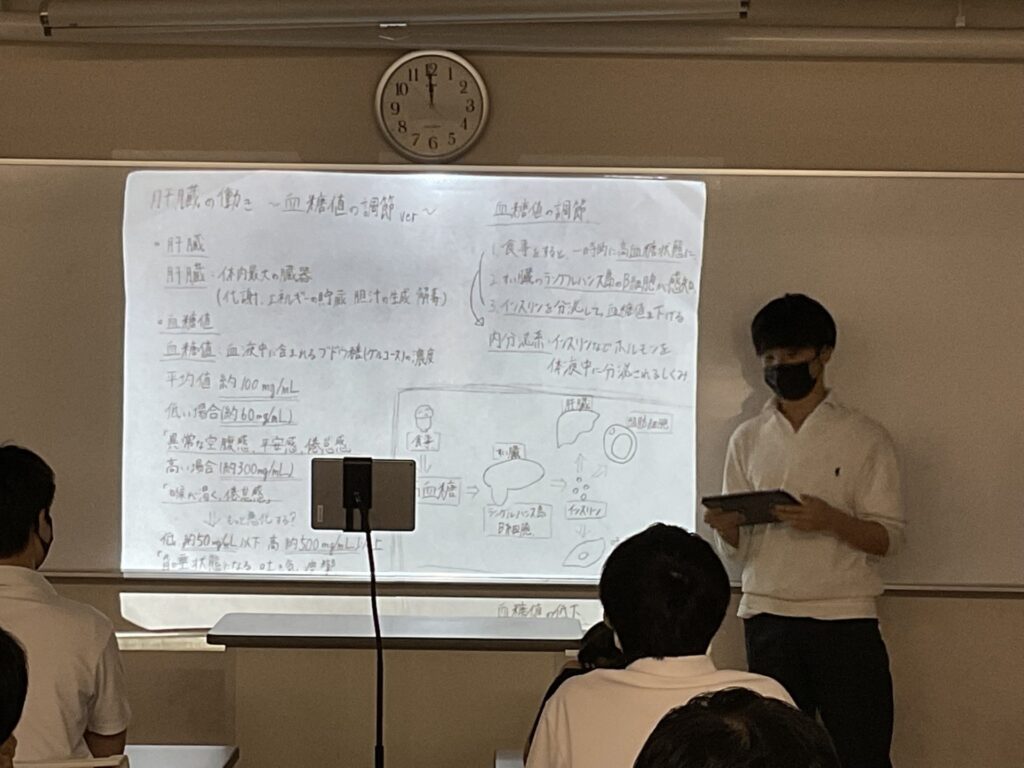 肝臓の働き ～血糖値の調節 ver～
・肝臓
肝臓：体内最大の臓器
(代謝、エネルギーの貯蔵 胆汁の生成 解毒)
・血糖値
血糖値：血液中に含まれるブドウ糖(グルコース)の濃度
平均値 約100mg/mL
低い場合(約60mg/mL)
「異常な空腹感、不安感、倦怠感
高い場合(約300mg/mL)
「喉が渇く、倦怠感」
⇓ もっと悪化する?
低 約50mg/mL以下 高 約500mg/mL以上
状態になる 吐き気
血糖値の調節
1. 食事をすると、一時的に高血糖状態に
2. すい臓のランゲルハンス島のB細胞が感知
3. インスリンを分泌して、血糖値を下げる
内分泌系：インスリンなどホルモンを
体液中に分泌されるしくみ
食事
血糖
すい臓
ランゲルハンス島
B細胞
肝臓
脂肪細胞
インスリン
血糖値の低下
11 12 1 2 3 4 5 6 7 8 9 10